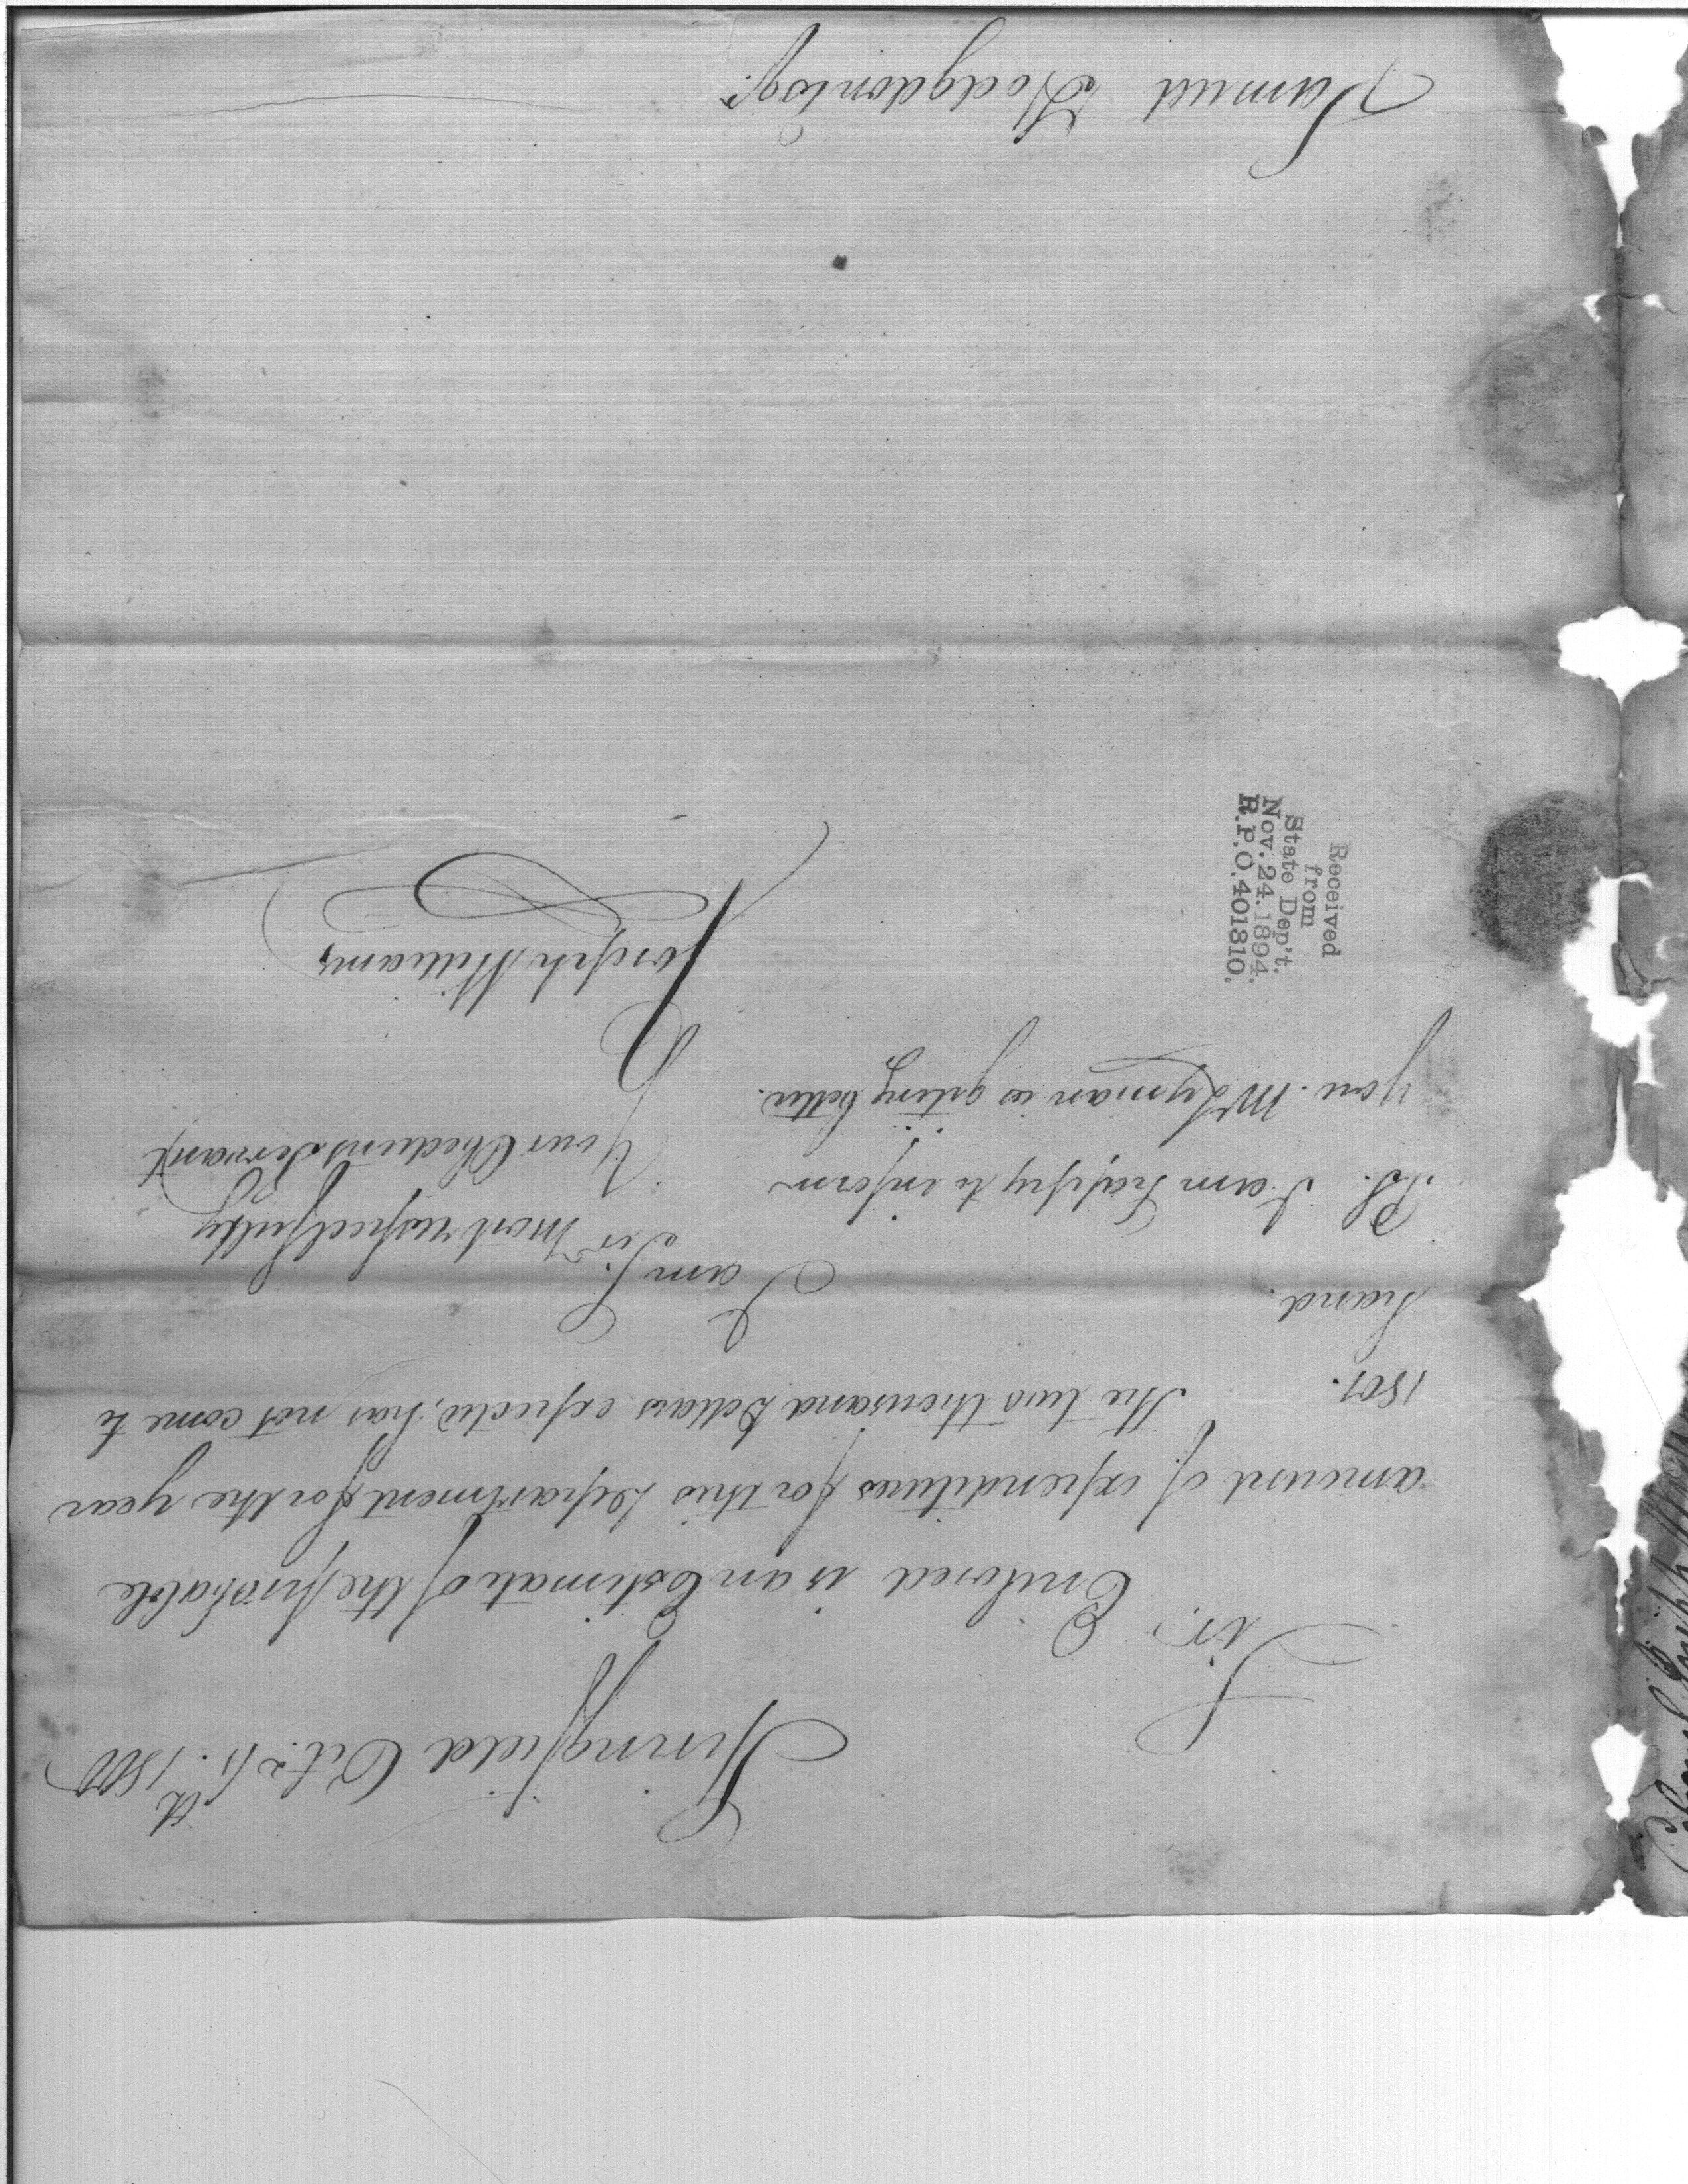 Springfield Octr. 15th. 1800
Sir.
Enclosed is an Estimate of the probable
amount of expenditures for this Department for the year
1801. The two thousand Dollars expected, has not come to
hand.
I am Sir
Sir most respectfully
Your Obedient Servant
Joseph Williams
P.S. I am happy to inform
you. Mr Lyman is giting better.
Received
from
State Dep't.
Nov. 24. 1894.
R.P.O. 401310.
Samuel Hodgdon Esqr.
Joseph